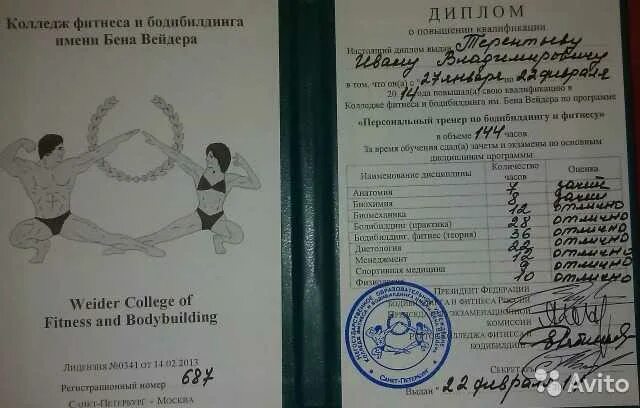 Колледж фитнеса и бодибилдинга
имени Бена Вейдера
Weider College of
Fitness and Bodybuilding
Лицензия №0341 от 14.02.2013
Регистрационный номер 687
Санкт-Петербург - Москва
ДИПЛОМ
о повышении квалификации
Настоящий диплом выдан Терентьеву
Ивану Владимировичу
в том, что он(а) с "27 января по 22 февраля
2014 года повышал(а) свою квалификацию в
Колледже фитнеса и бодибилдинга им. Бена Вейдера по программе
«Персональный тренер по бодибилдингу и фитнесу»
в объеме 144 часов.
За время обучения сдал(а) зачеты и экзамены по основным
дисциплинам программы:
Наименование дисциплины Количество часов Оценка
Анатомия 7 зачет
Биохимия 8 зачет
Биомеханика 12 отлично
Бодибилдинг (практика) 28 отлично
Бодибилдинг, фитнес (теория) 36 отлично
Диетология 22 отлично
Менеджмент 12 отлично
Спортивная медицина 9 отлично
10 отлично
Президент Федерации
фитнеса России
экзаменационной
комиссии
колледжа фитнеса
Санкт-Петербург
Выдан "22 февраля
Avito